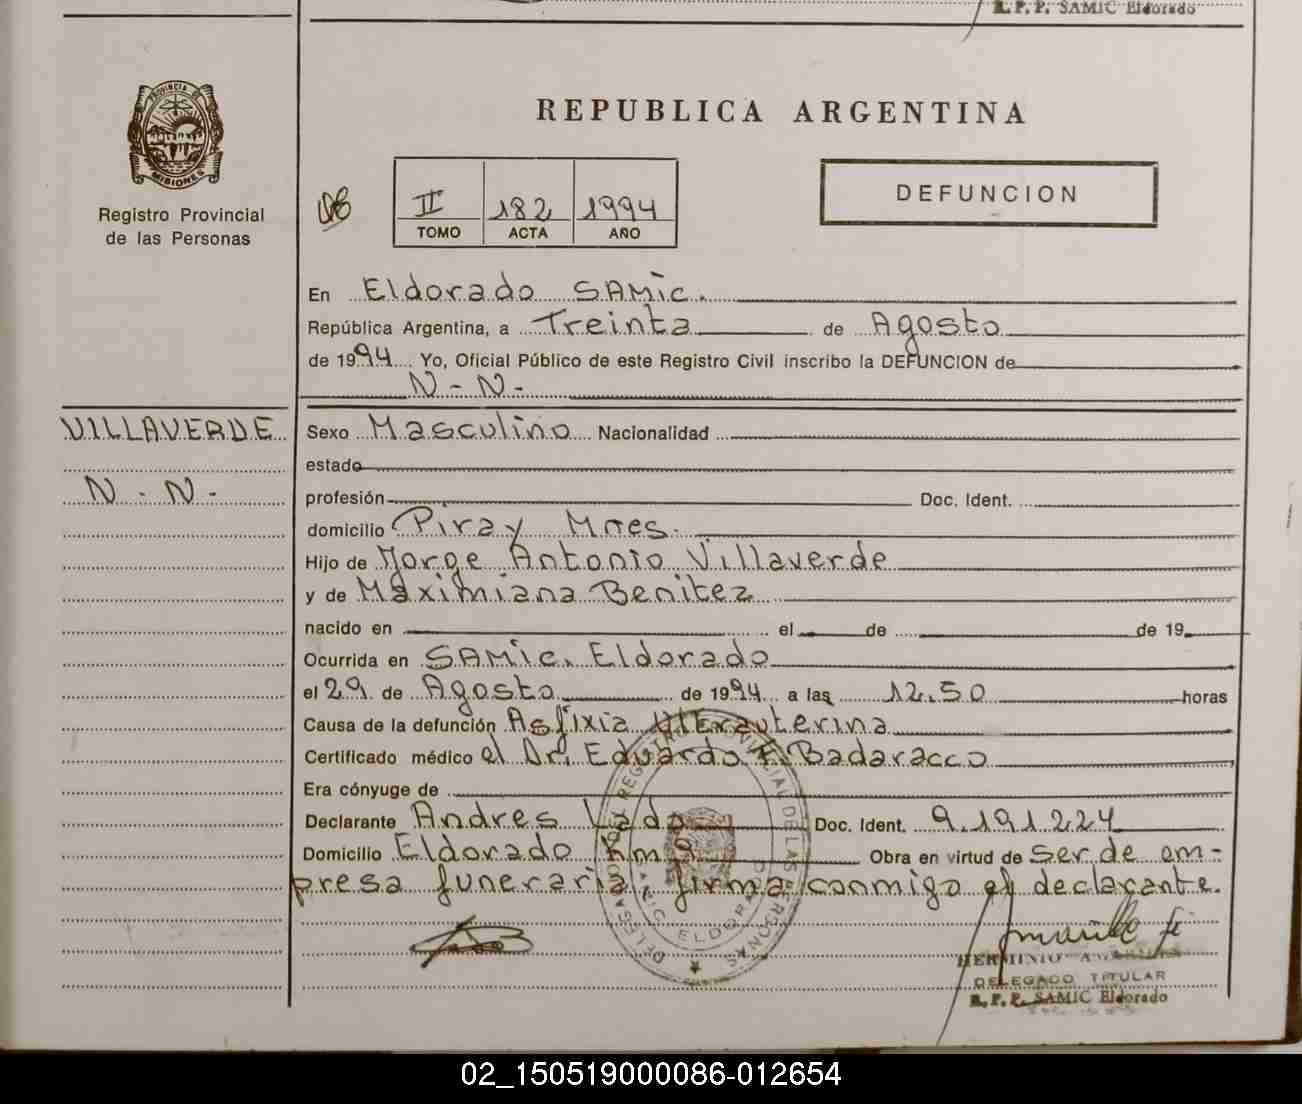 R. P. P. SAMIC Eldorado
PROVINCIA DE
MISIONES
Registro Provincial
de las Personas
REPUBLICA ARGENTINA
II 182 1994
TOMO ACTA AÑO
DEFUNCION
En Eldorado SAMic.
República Argentina, a Treinta de Agosto
de 1994 Yo, Oficial Público de este Registro Civil inscribo la DEFUNCION de
N - N -
VILLAVERDE
N - N -
Sexo Masculino Nacionalidad
estado
profesión Doc. Ident.
domicilio Piray Mnes.
Hijo de Jorge Antonio Villaverde
y de Maximiana Benitez
nacido en el de de 19
Ocurrida en SAMic. Eldorado
el 29 de Agosto de 1994 a las 12.50 horas
Causa de la defunción Asfixia Utrauterina
Certificado médico el Dr. Eduardo F. Badaracco
Era cónyuge de
Declarante Andres Lado Doc. Ident. 9.191.224
Domicilio Eldorado Km 9 Obra en virtud de ser de em-
presa funeraria firma conmigo el declarante.
DELEGACION DEL REGISTRO PROVINCIAL DE LAS PERSONAS
SAMIC ELDORADO
HERMINIO
DELEGADO TITULAR
R. P. P. SAMIC Eldorado
02_150519000086-012654